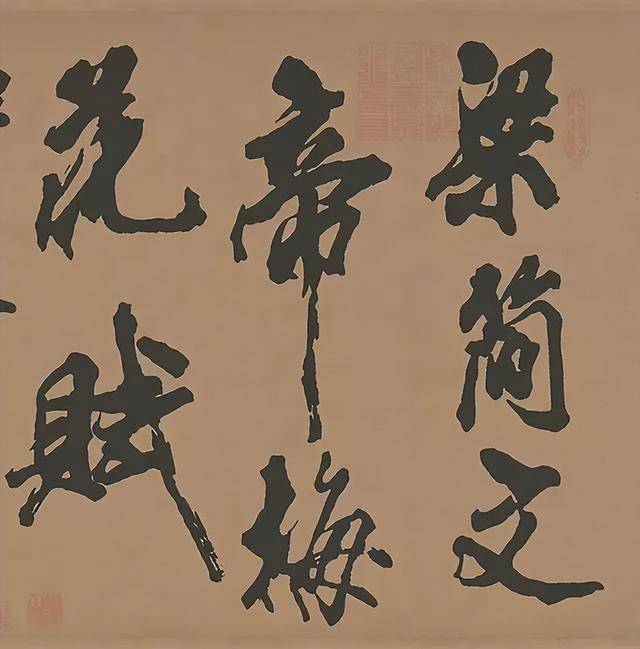 梁简文
帝梅
花賦